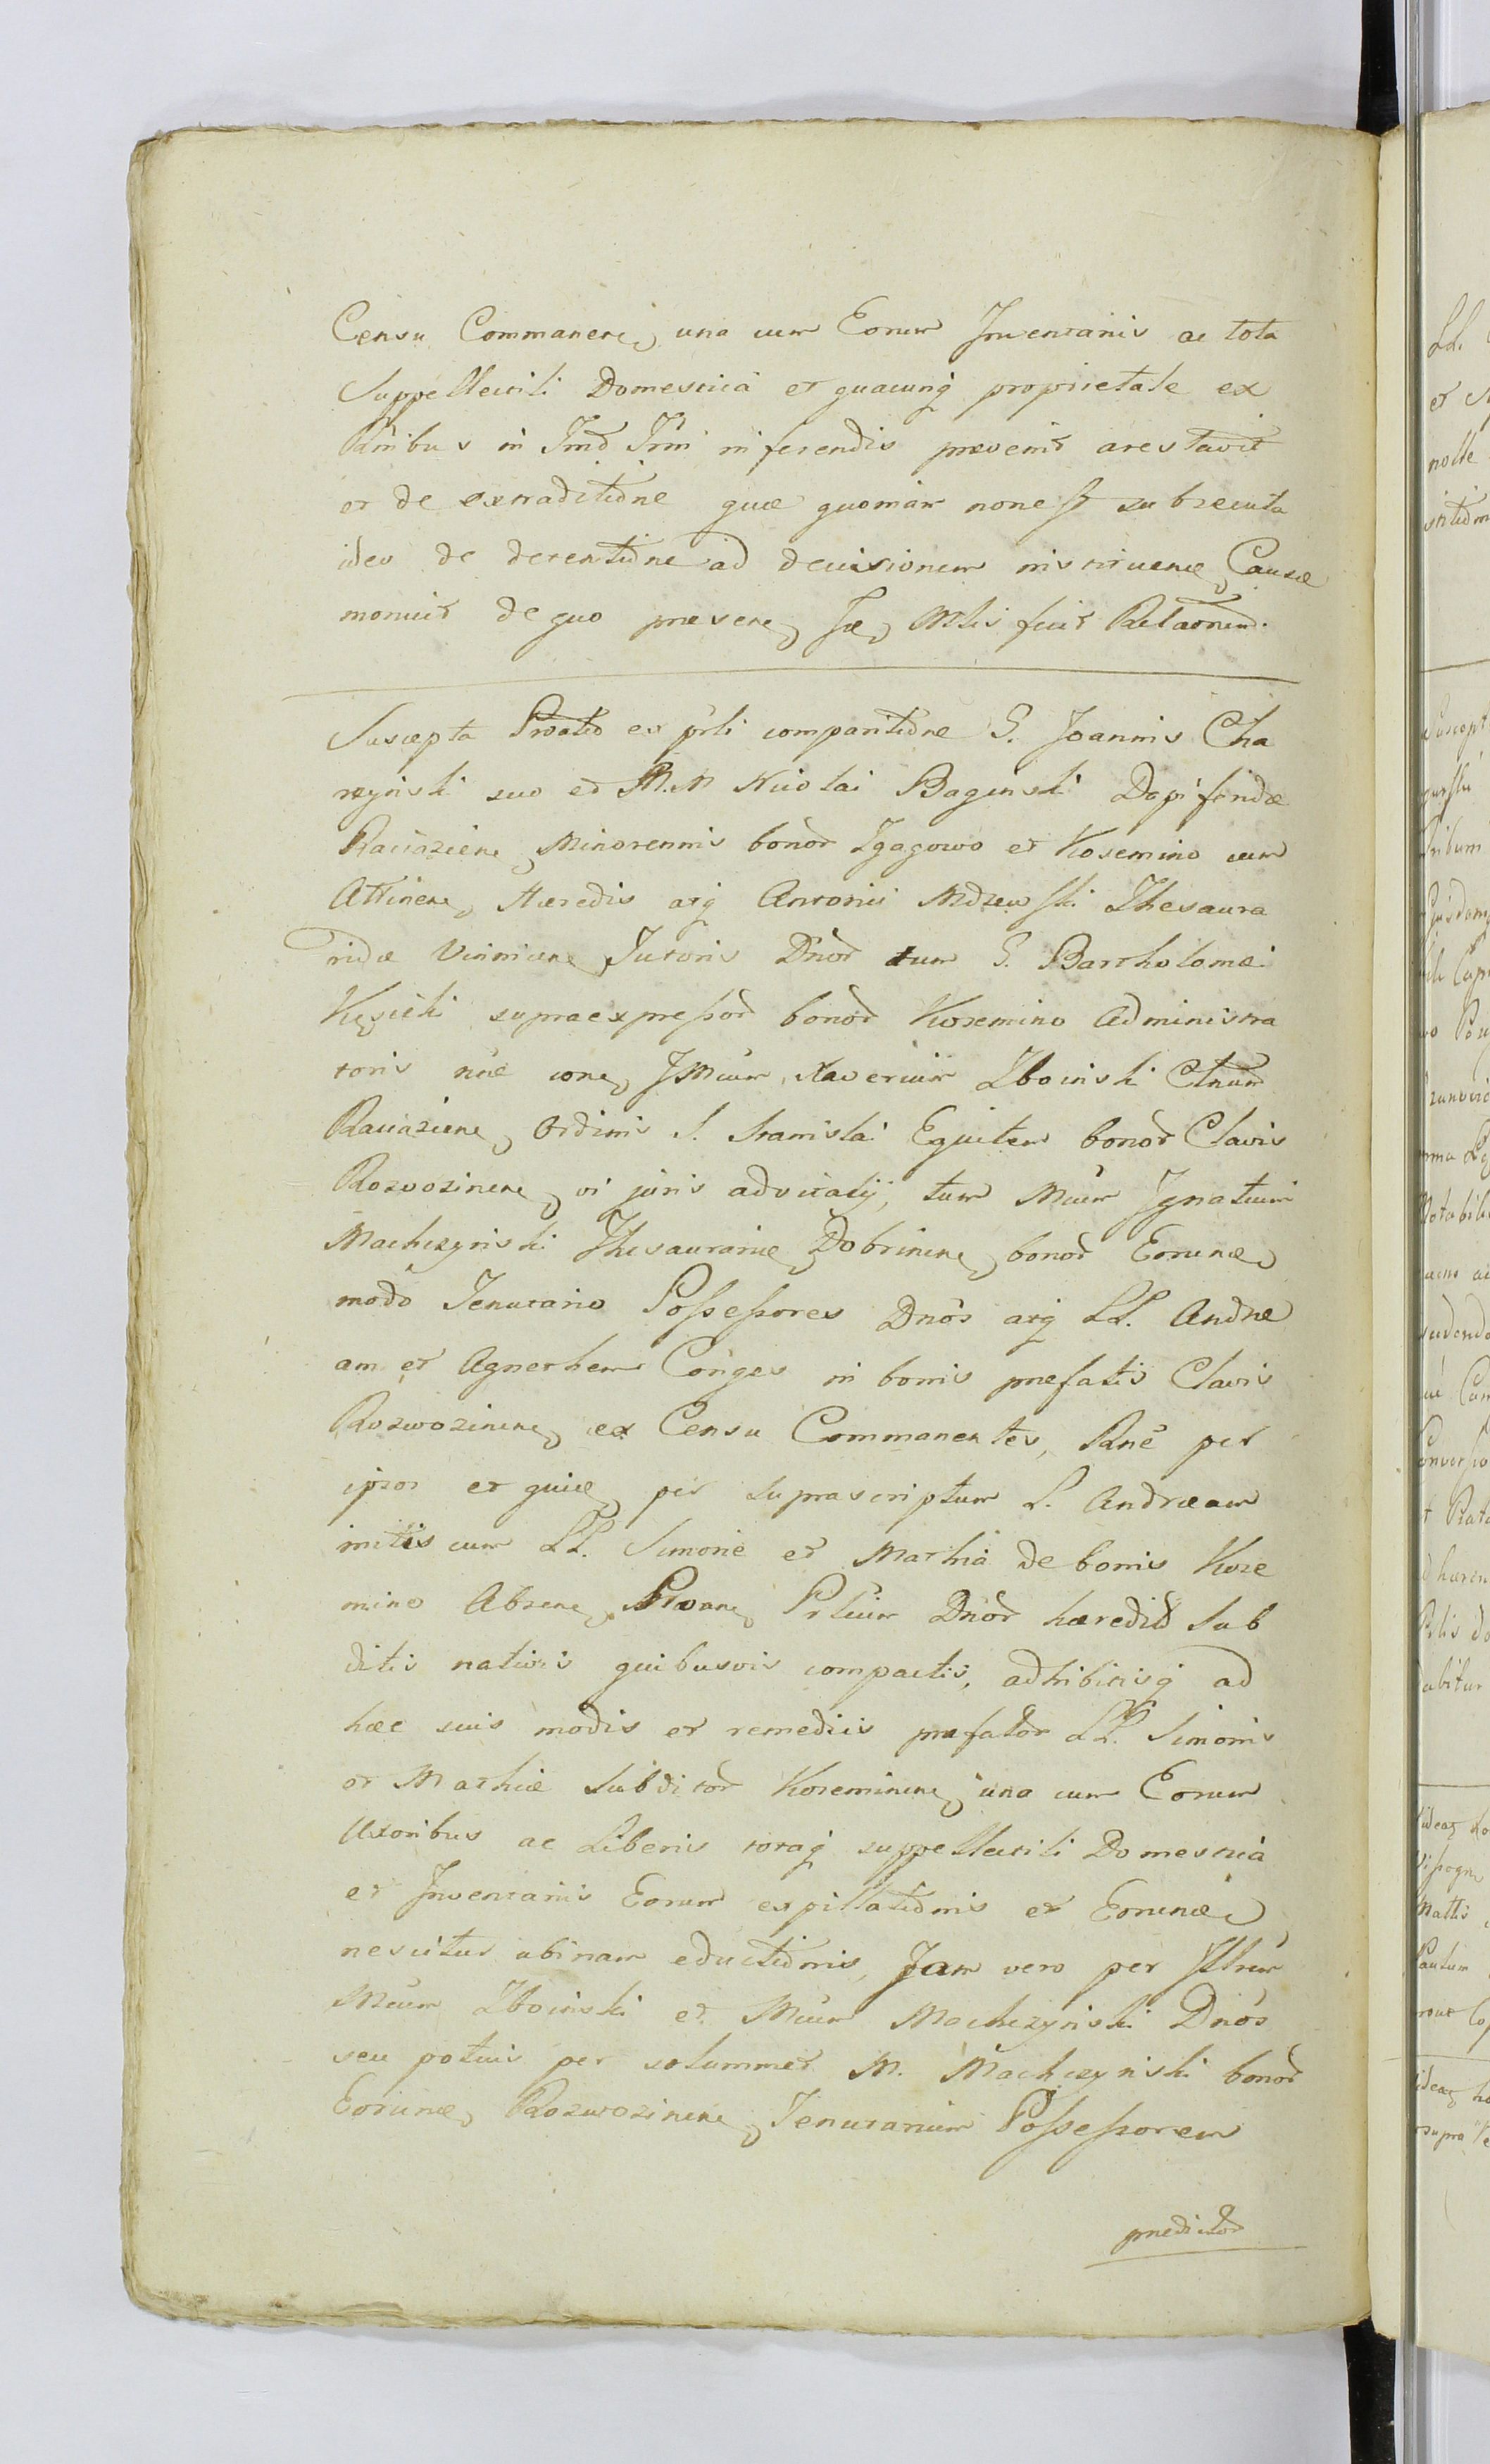 Censu Commanen, una cum Eorum Inventariis ac tota
Suppellectili Domestica et quacunq proprietate ex
Rnibus in Imd Trmi inferendis prævenit arestavit
et de extraditidne quæ quoniam non est subsecuta
ideo de detentidne ad decisionem instituenæ Causæ
monuit de quo præsen, Jæ, Mlis fecit Relaonem.
Suscepta Prtatio ex prli comparitidne G. Joannis Cha
rzyński suo et M. M Nicolai Bagieński Dapiferidæ
Raciązien, Minorennis bonor Zgagowo et Kosemino cum
Attinen, Hæredis atq Antonii Mdzewski Thesaura
ridæ Vinnicen, Tutoris Dnor tum G. Bartholomæi
Kęsicki supraexpressor bonor Kosemino Administra
toris nne con, JMcum Xaverium Zboinski Ctnum
Raciązien, Ordinis S. Stanislai Equitem bonor Clavis
Rozwozinen, vi juris advitalij, tum Mcum Ignatium
Machczyński Thesaurariæ Dobrinen, bonor Eorunæ,
modo Tenutario Possessores Dnos atq LL. Andræ
am et Agnethem Conges in bonis præfatis Clavis
Rozwozinen, ex Censu Commanentes, Rne per
ipsos et quiæ, per suprascriptum L. Andræam
initis cum LL. Simone et Mathia de bonis Kose
mino Absen, Prtoan, Prtium Dnor hæredid Sub
ditis nativis quibusvis compactis, adhibitisq ad
hæc suis modis et remediis præfator LL. Simonis
et Mathiæ Subditor Koseminen, una cum Eorum
Uxoribus ac Liberis totaq suppellectili Domestica
et Inventariis Eorum expillatidnis et Eorunæ,
nescitur ubinam eductidnis, Jam vero per Illrem
Mcum Zboinski et Mcum Machczyński Dnos
seu potius per solummet M. Machczyński bonor
Eorunæ, Rozwozinen, Tenutarium Possessorem
prædictor